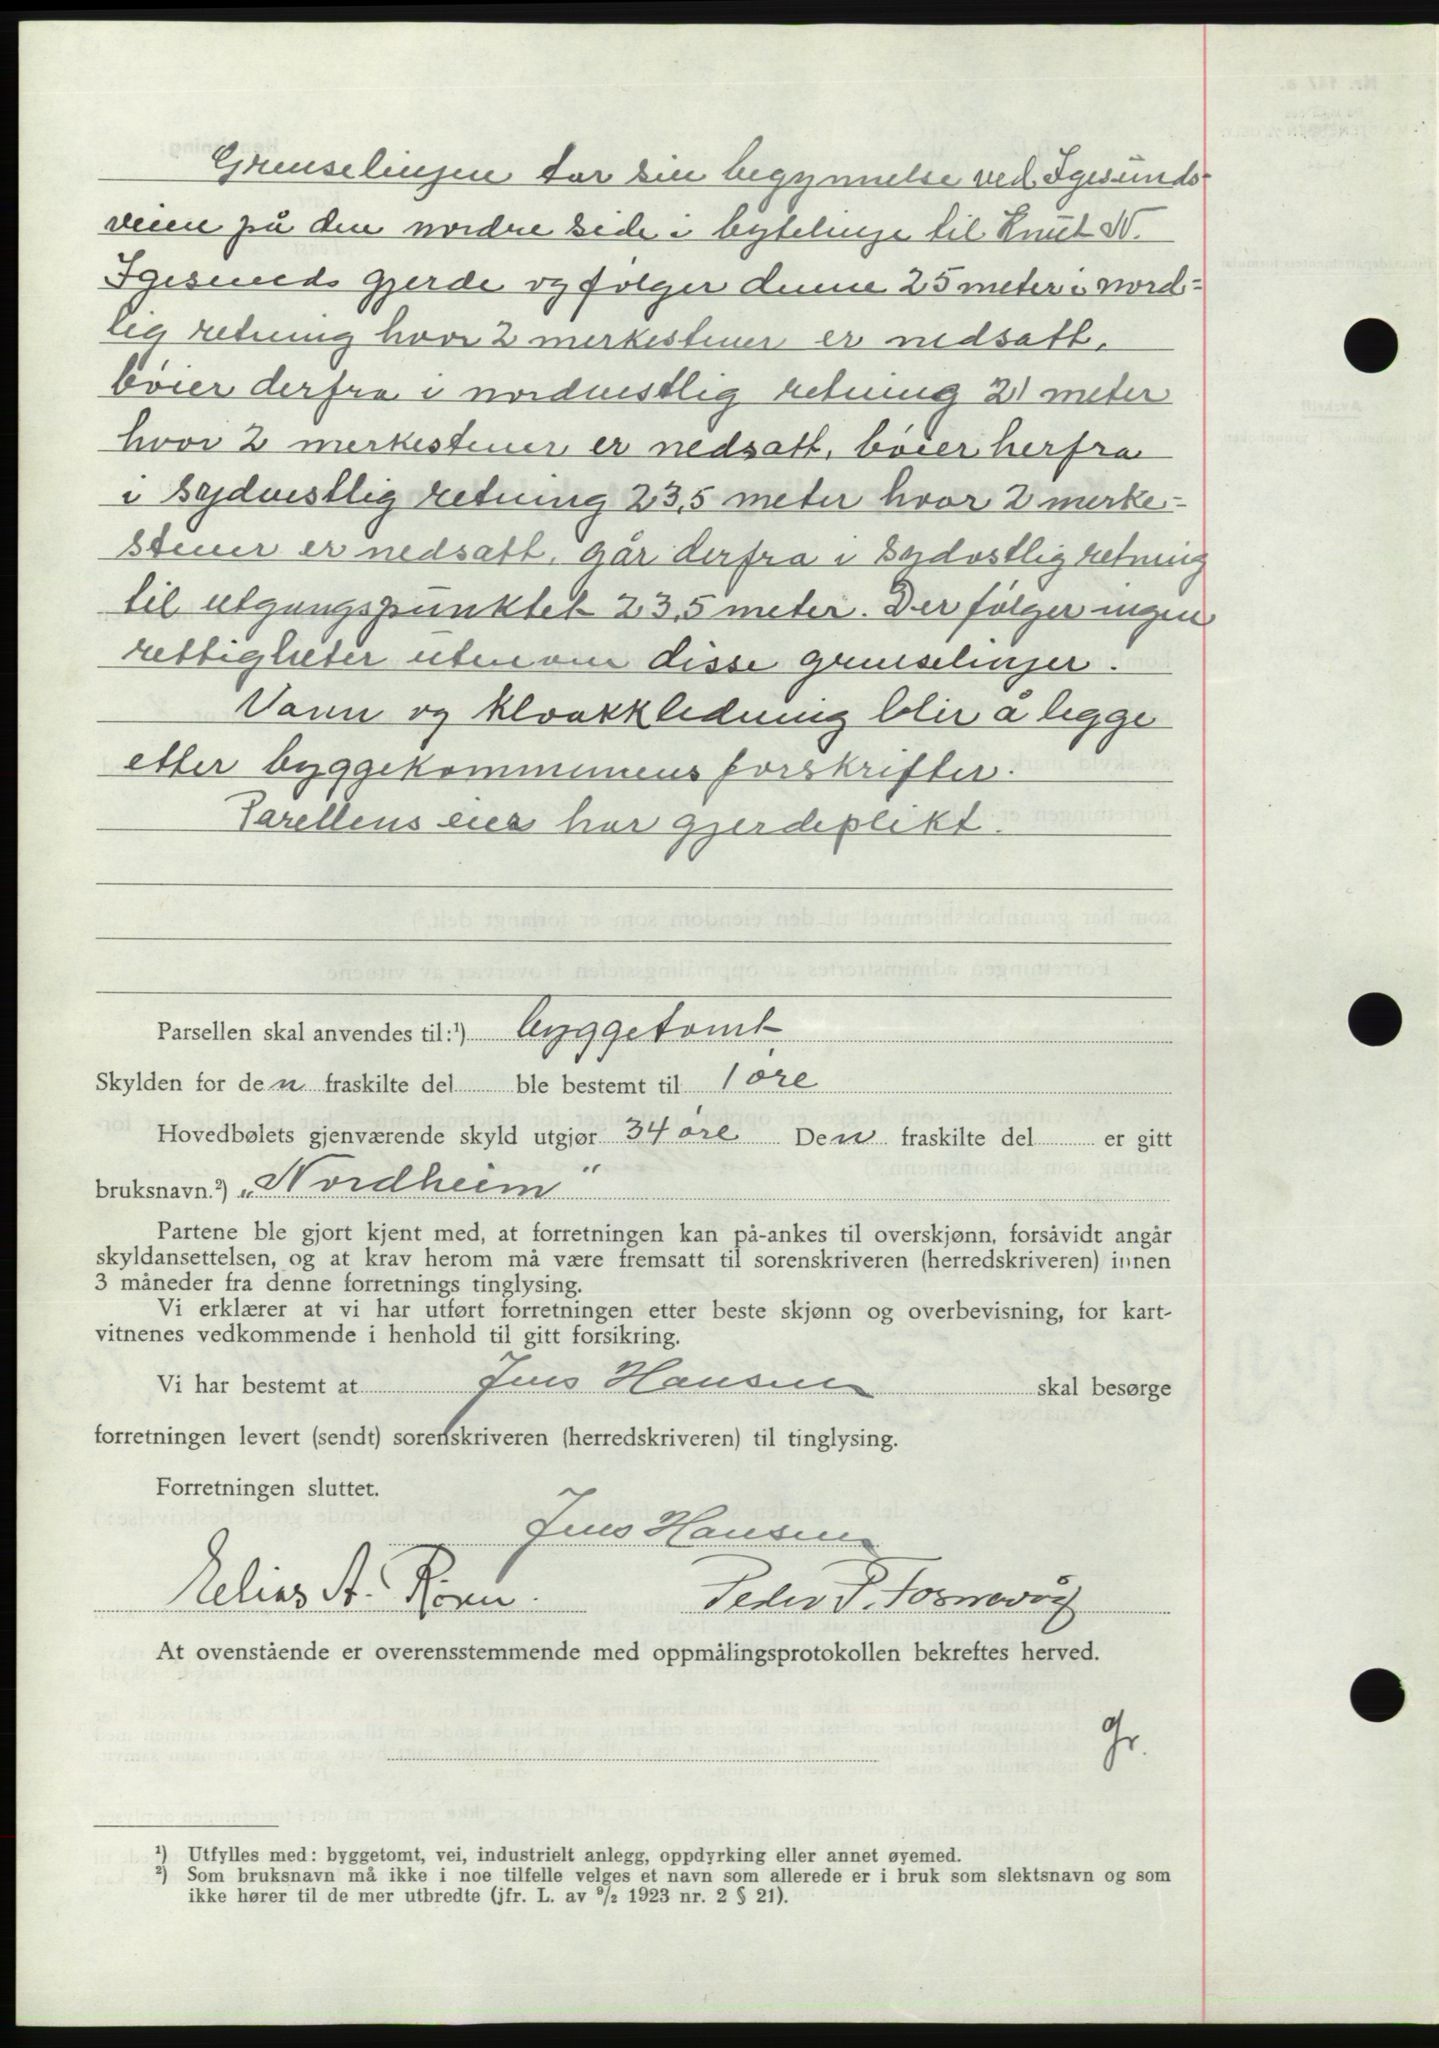 Grenselinjen tar sin begynnelse ved Igesunds-
veien på den nordre side i bytelinje til Knut N.
Igesunds gjerde og følger denne 25 meter i nord=
lig retning hvor 2 merkestener er nedsatt,
bøier derfra i nordvestlig retning 21 meter
hvor 2 merkestener er nedsatt, bøier herfra
i sydvestlig retning 23,5 meter hvor 2 merke=
stener er nedsatt, går derfra i sydostlig retning
til utgangspunktet 23,5 meter. Der følger ingen
rettigheter utenom disse grenselinjer.
Vann og kloakkledning blir å legge
etter byggekommunens forskrifter.
Parellens eier har gjerdeplikt.
Parsellen skal anvendes til:¹) byggetomt
Skylden for den fraskilte del ble bestemt til 1 øre
Hovedbølets gjenværende skyld utgjør 34 øre Den fraskilte del er gitt
bruksnavn.²) „Nordheim"
Partene ble gjort kjent med, at forretningen kan på-ankes til overskjønn, forsåvidt angår
skyldansettelsen, og at krav herom må være fremsatt til sorenskriveren (herredskriveren) innen
3 måneder fra denne forretnings tinglysing.
Vi erklærer at vi har utført forretningen etter beste skjønn og overbevisning, for kart-
vitnenes vedkommende i henhold til gitt forsikring.
Vi har bestemt at Jens Hansen skal besørge
forretningen levert (sendt) sorenskriveren (herredskriveren) til tinglysing.
Forretningen sluttet.
Jens Hansen
Elias A. Røren. Peder P. Fosnavåg
At ovenstående er overensstemmende med oppmålingsprotokollen bekreftes herved.
Gr.
¹) Utfylles med: byggetomt, vei, industrielt anlegg, oppdyrking eller annet øyemed.
²) Som bruksnavn må ikke i noe tilfelle velges et navn som allerede er i bruk som slektsnavn og som
ikke hører til de mer utbredte (jfr. L. av ⁹/₂ 1923 nr. 2 § 21).